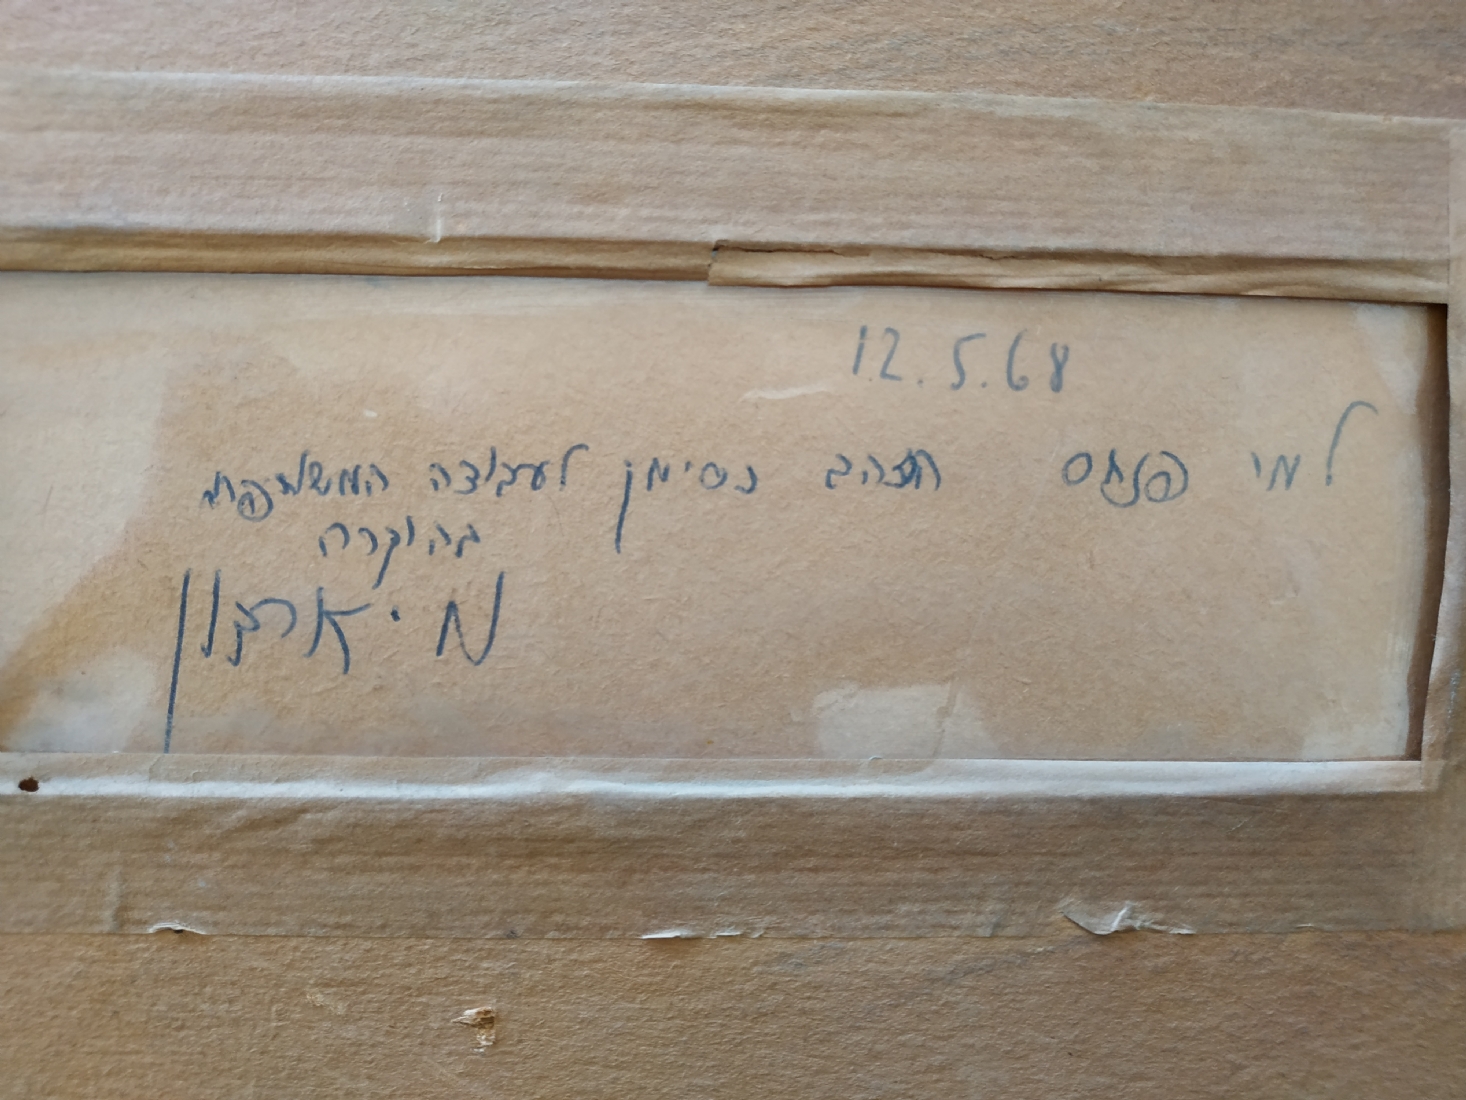 12.5.68
למי פנחס הזהב כסימן לעבודה המשותפת
בהוקרה
מ. ארדון